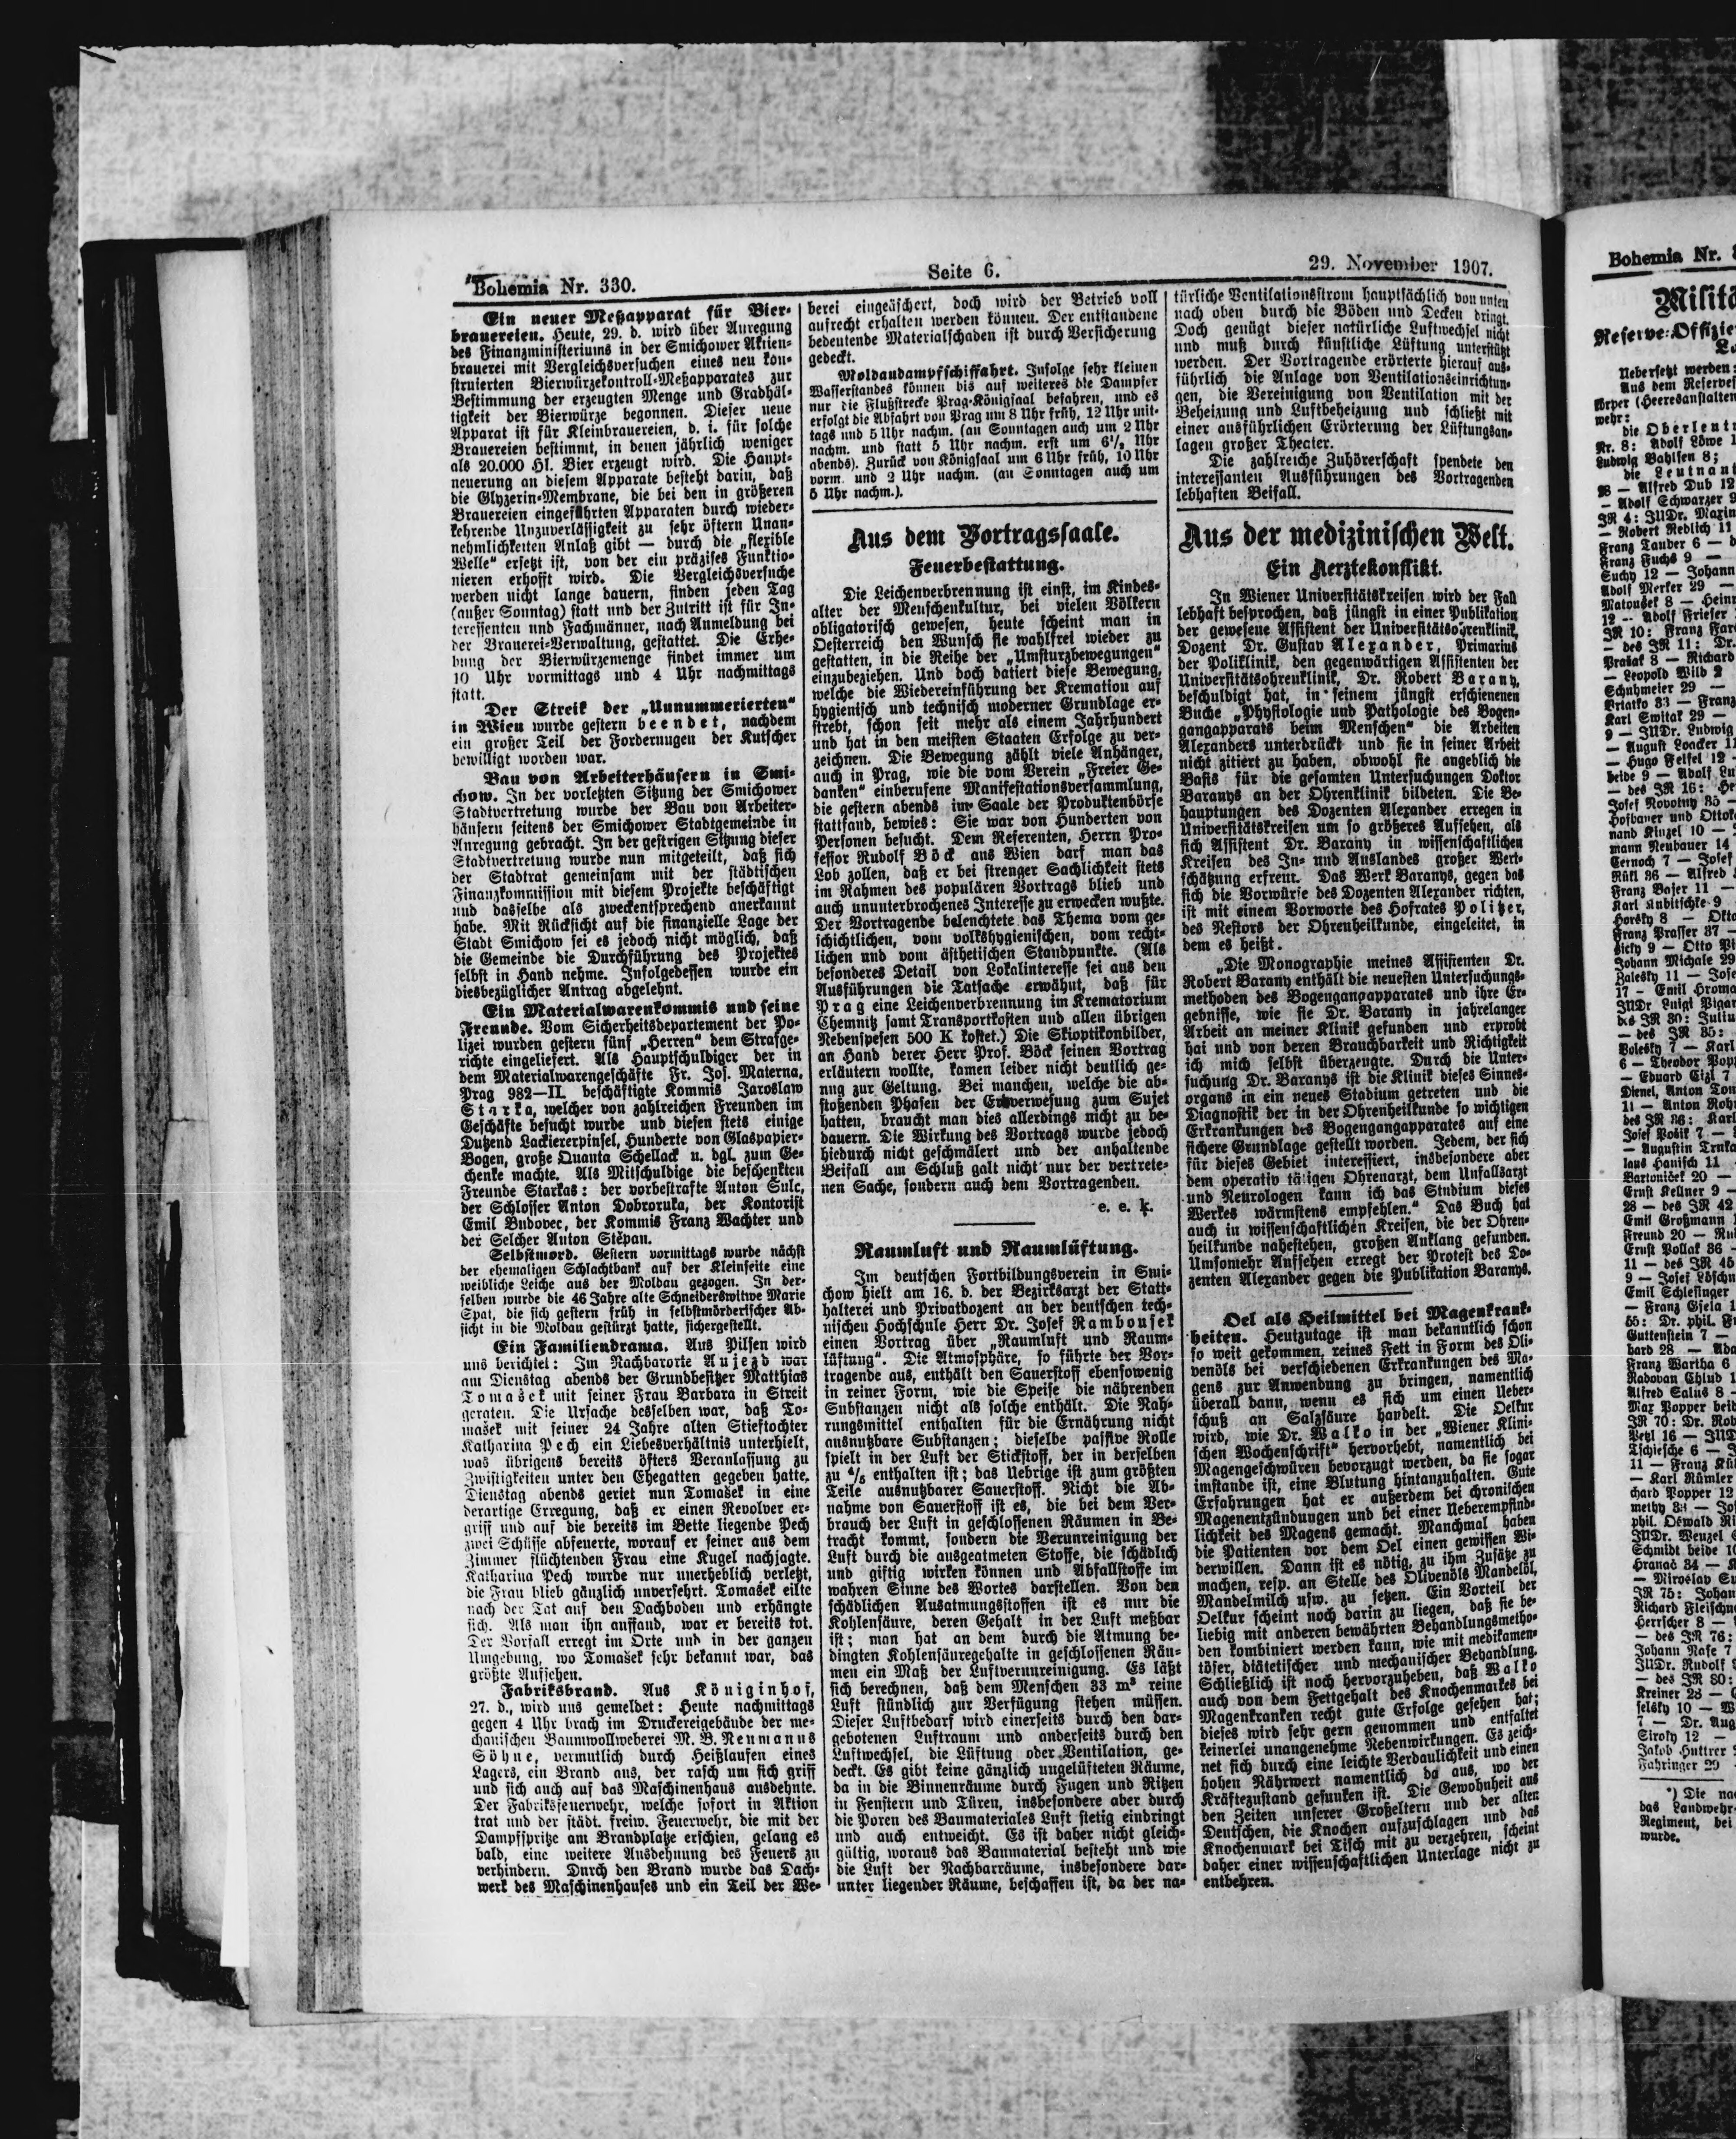 Bohemia Nr. 330.
Seite 6.
29. November 1907.
Ein neuer Meßapparat für Bier-
brauereien. Heute, 29. d. wird über Anregung
des Finanzministeriums in der Smichower Aktien-
brauerei mit Vergleichsversuchen eines neu kon-
struierten Bierwürzekontroll-Meßapparates zur
Bestimmung der erzeugten Menge und Gradhäl-
tigkeit der Bierwürze begonnen. Dieser neue
Apparat ist für Kleinbrauereien, d. i. für solche
Brauereien bestimmt, in denen jährlich weniger
als 20.000 Hl. Bier erzeugt wird. Die Haupt-
neuerung an diesem Apparate besteht darin, daß
die Glyzerin-Membrane, die bei den in größeren
Brauereien eingeführten Apparaten durch wieder-
kehrende Unzuverlässigkeit zu sehr öftern Unan-
nehmlichkeiten Anlaß gibt — durch die „flexible
Welle“ ersetzt ist, von der ein präzises Funktio-
nieren erhofft wird. Die Vergleichsversuche
werden nicht lange dauern, finden jeden Tag
(außer Sonntag) statt und der Zutritt ist für In-
teressenten und Fachmänner, nach Anmeldung bei
der Brauerei-Verwaltung, gestattet. Die Erhe-
bung der Bierwürzemenge findet immer um
10 Uhr vormittags und 4 Uhr nachmittags
statt.
Der Streik der „Unnummerierten“
in Wien wurde gestern beendet, nachdem
ein großer Teil der Forderungen der Kutscher
bewilligt worden war.
Bau von Arbeiterhäusern in Smi-
chow. In der vorletzten Sitzung der Smichower
Stadtvertretung wurde der Bau von Arbeiter-
häusern seitens der Smichower Stadtgemeinde in
Anregung gebracht. In der gestrigen Sitzung dieser
Stadtvertretung wurde nun mitgeteilt, daß sich
der Stadtrat gemeinsam mit der städtischen
Finanzkommission mit diesem Projekte beschäftigt
und dasselbe als zweckentsprechend anerkannt
habe. Mit Rücksicht auf die finanzielle Lage der
Stadt Smichow sei es jedoch nicht möglich, daß
die Gemeinde die Durchführung des Projektes
selbst in Hand nehme. Infolgedessen wurde ein
diesbezüglicher Antrag abgelehnt.
Ein Materialwarenkommis und seine
Freunde. Vom Sicherheitsdepartement der Po-
lizei wurden gestern fünf „Herren“ dem Strafge-
richte eingeliefert. Als Hauptschuldiger der in
dem Materialwarengeschäfte Fr. Jos. Materna,
Prag 982—II. beschäftigte Kommis Jaroslaw
Starka, welcher von zahlreichen Freunden im
Geschäfte besucht wurde und diesen stets einige
Dutzend Lackiererpinsel, Hunderte von Glaspapier-
Bogen, große Quanta Schellack u. dgl. zum Ge-
schenke machte. Als Mitschuldige die beschenkten
Freunde Starkas: der vorbestrafte Anton Sulc,
der Schlosser Anton Dobroruka, der Kontorist
Emil Budovec, der Kommis Franz Wachter und
der Selcher Anton Stěpan.
Selbstmord. Gestern vormittags wurde nächst
der ehemaligen Schlachtbank auf der Kleinseite eine
weibliche Leiche aus der Moldau gezogen. In der-
selben wurde die 46 Jahre alte Schneiderswitwe Marie
Spat, die sich gestern früh in selbstmörderischer Ab-
sicht in die Moldau gestürzt hatte, sichergestellt.
Ein Familiendrama. Aus Pilsen wird
uns berichtet: Im Nachbarorte Aujezd war
am Dienstag abends der Grundbesitzer Matthias
Tomašek mit seiner Frau Barbara in Streit
geraten. Die Ursache desselben war, daß To-
mašek mit seiner 24 Jahre alten Stieftochter
Katharina Pech ein Liebesverhältnis unterhielt,
was übrigens bereits öfters Veranlassung zu
Zwistigkeiten unter den Ehegatten gegeben hatte.
Dienstag abends geriet nun Tomašek in eine
derartige Erregung, daß er einen Revolver er-
griff und auf die bereits im Bette liegende Pech
zwei Schüsse abfeuerte, worauf er seiner aus dem
Zimmer flüchtenden Frau eine Kugel nachjagte.
Katharina Pech wurde nur unerheblich verletzt,
die Frau blieb gänzlich unversehrt. Tomašek eilte
nach der Tat auf den Dachboden und erhängte
sich. Als man ihn auffand, war er bereits tot.
Der Vorfall erregt im Orte und in der ganzen
Umgebung, wo Tomašek sehr bekannt war, das
größte Aufsehen.
Fabriksbrand. Aus Königinhof,
27. d., wird uns gemeldet: Heute nachmittags
gegen 4 Uhr brach im Druckereigebäude der me-
chanischen Baumwollweberei M. B. Neumanns
Söhne, vermutlich durch Heißlaufen eines
Lagers, ein Brand aus, der rasch um sich griff
und sich auch auf das Maschinenhaus ausdehnte.
Der Fabriksfeuerwehr, welche sofort in Aktion
trat und der städt. freiw. Feuerwehr, die mit der
Dampfspritze am Brandplatze erschien, gelang es
bald, eine weitere Ausdehnung des Feuers zu
verhindern. Durch den Brand wurde das Dach-
werk des Maschinenhauses und ein Teil der We-
berei eingeäschert, doch wird der Betrieb voll
aufrecht erhalten werden können. Der entstandene
bedeutende Materialschaden ist durch Versicherung
gedeckt.
Moldaudampfschiffahrt. Infolge sehr kleinen
Wasserstandes können bis auf weiteres die Dampfer
nur die Flußstrecke Prag-Königsaal befahren, und es
erfolgt die Abfahrt von Prag um 8 Uhr früh, 12 Uhr mit-
tags und 5 Uhr nachm. (an Sonntagen auch um 2 Uhr
nachm. und statt 5 Uhr nachm. erst um 6½ Uhr
abends). Zurück von Königsaal um 6 Uhr früh, 10 Uhr
vorm. und 2 Uhr nachm. (an Sonntagen auch um
5 Uhr nachm.).
Aus dem Vortragssaale.
Feuerbestattung.
Die Leichenverbrennung ist einst, im Kindes-
alter der Menschenkultur, bei vielen Völkern
obligatorisch gewesen, heute scheint man in
Oesterreich den Wunsch sie wahlfrei wieder zu
gestatten, in die Reihe der „Umsturzbewegungen“
einzubeziehen. Und doch datiert diese Bewegung,
welche die Wiedereinführung der Kremation auf
hygienisch und technisch moderner Grundlage er-
strebt, schon seit mehr als einem Jahrhundert
und hat in den meisten Staaten Erfolge zu ver-
zeichnen. Die Bewegung zählt viele Anhänger,
auch in Prag, wie die vom Verein „Freier Ge-
danken“ einberufene Manifestationsversammlung,
die gestern abends im Saale der Produktenbörse
stattfand, bewies: Sie war von Hunderten von
Personen besucht. Dem Referenten, Herrn Pro-
fessor Rudolf Böck aus Wien darf man das
Lob zollen, daß er bei strenger Sachlichkeit stets
im Rahmen des populären Vortrags blieb und
auch ununterbrochenes Interesse zu erwecken wußte.
Der Vortragende beleuchtete das Thema vom ge-
schichtlichen, vom volkshygienischen, vom recht-
lichen und vom ästhetischen Standpunkte. (Als
besonderes Detail von Lokalinteresse sei aus den
Ausführungen die Tatsache erwähnt, daß für
Prag eine Leichenverbrennung im Krematorium
Chemnitz samt Transportkosten und allen übrigen
Nebenspesen 500 K kostet.) Die Skioptikonbilder,
an Hand derer Herr Prof. Böck seinen Vortrag
erläutern wollte, kamen leider nicht deutlich ge-
nug zur Geltung. Bei manchen, welche die ab-
stoßenden Phasen der Erdverwesung zum Sujet
hatten, braucht man dies allerdings nicht zu be-
dauern. Die Wirkung des Vortrags wurde jedoch
hiedurch nicht geschmälert und der anhaltende
Beifall am Schluß galt nicht nur der vertrete-
nen Sache, sondern auch dem Vortragenden.
e. e. k.
Raumluft und Raumlüftung.
Im deutschen Fortbildungsverein in Smi-
chow hielt am 16. d. der Bezirksarzt der Statt-
halterei und Privatdozent an der deutschen tech-
nischen Hochschule Herr Dr. Josef Rambousek
einen Vortrag über „Raumluft und Raum-
lüftung“. Die Atmosphäre, so führte der Vor-
tragende aus, enthält den Sauerstoff ebensowenig
in reiner Form, wie die Speise die nährenden
Substanzen nicht als solche enthält. Die Nah-
rungsmittel enthalten für die Ernährung nicht
ausnutzbare Substanzen; dieselbe passive Rolle
spielt in der Luft der Stickstoff, der in derselben
zu ⁴/₅ enthalten ist; das Uebrige ist zum größten
Teile ausnutzbarer Sauerstoff. Nicht die Ab-
nahme von Sauerstoff ist es, die bei dem Ver-
brauch der Luft in geschlossenen Räumen in Be-
tracht kommt, sondern die Verunreinigung der
Luft durch die ausgeatmeten Stoffe, die schädlich
und giftig wirken können und Abfallstoffe im
wahren Sinne des Wortes darstellen. Von den
schädlichen Ausatmungsstoffen ist es nur die
Kohlensäure, deren Gehalt in der Luft meßbar
ist; man hat an dem durch die Atmung be-
dingten Kohlensäuregehalte in geschlossenen Räu-
men ein Maß der Luftverunreinigung. Es läßt
sich berechnen, daß dem Menschen 33 m³ reine
Luft stündlich zur Verfügung stehen müssen.
Dieser Luftbedarf wird einerseits durch den dar-
gebotenen Luftraum und anderseits durch den
Luftwechsel, die Lüftung oder Ventilation, ge-
deckt. Es gibt keine gänzlich ungelüfteten Räume,
da in die Binnenräume durch Fugen und Ritzen
in Fenstern und Türen, insbesondere aber durch
die Poren des Baumateriales Luft stetig eindringt
und auch entweicht. Es ist daher nicht gleich-
gültig, woraus das Baumaterial besteht und wie
die Luft der Nachbarräume, insbesondere dar-
unter liegender Räume, beschaffen ist, da der na-
türliche Ventilationsstrom hauptsächlich von unten
nach oben durch die Böden und Decken dringt.
Doch genügt dieser natürliche Luftwechsel nicht
und muß durch künstliche Lüftung unterstützt
werden. Der Vortragende erörterte hierauf aus-
führlich die Anlage von Ventilationseinrichtun-
gen, die Vereinigung von Ventilation mit der
Beheizung und Luftbeheizung und schließt mit
einer ausführlichen Erörterung der Lüftungsan-
lagen großer Theater.
Die zahlreiche Zuhörerschaft spendete den
interessanten Ausführungen des Vortragenden
lebhaften Beifall.
Aus der medizinischen Welt.
Ein Aerztekonflikt.
In Wiener Universitätskreisen wird der Fall
lebhaft besprochen, daß jüngst in einer Publikation
der gewesene Assistent der Universitätsohrenklinik,
Dozent Dr. Gustav Alexander, Primarius
der Poliklinik, den gegenwärtigen Assistenten der
Universitätsohrenklinik, Dr. Robert Barany,
beschuldigt hat, in seinem jüngst erschienenen
Buche „Physiologie und Pathologie des Bogen-
gangapparats beim Menschen“ die Arbeiten
Alexanders unterdrückt und sie in seiner Arbeit
nicht zitiert zu haben, obwohl sie angeblich die
Basis für die gesamten Untersuchungen Doktor
Baranys an der Ohrenklinik bildeten. Die Be-
hauptungen des Dozenten Alexander erregen in
Universitätskreisen um so größeres Aufsehen, als
sich Assistent Dr. Barany in wissenschaftlichen
Kreisen des In- und Auslandes großer Wert-
schätzung erfreut. Das Werk Baranys, gegen das
sich die Vorwürfe des Dozenten Alexander richten,
ist mit einem Vorworte des Hofrates Politzer,
des Nestors der Ohrenheilkunde, eingeleitet, in
dem es heißt.
„Die Monographie meines Assistenten Dr.
Robert Barany enthält die neuesten Untersuchungs-
methoden des Bogengangapparates und ihre Er-
gebnisse, wie sie Dr. Barany in jahrelanger
Arbeit an meiner Klinik gefunden und erprobt
hat und von deren Brauchbarkeit und Richtigkeit
ich mich selbst überzeugte. Durch die Unter-
suchung Dr. Baranys ist die Klinik dieses Sinnes-
organs in ein neues Stadium getreten und die
Diagnostik der in der Ohrenheilkunde so wichtigen
Erkrankungen des Bogengangapparates auf eine
sichere Grundlage gestellt worden. Jedem, der sich
für dieses Gebiet interessiert, insbesondere aber
dem operativ tätigen Ohrenarzt, dem Unfallsarzt
und Neurologen kann ich das Studium dieses
Werkes wärmstens empfehlen.“ Das Buch hat
auch in wissenschaftlichen Kreisen, die der Ohren-
heilkunde nahestehen, großen Anklang gefunden.
Umsomehr Aufsehen erregt der Protest des Do-
zenten Alexander gegen die Publikation Baranys.
Oel als Heilmittel bei Magenkrank-
heiten. Heutzutage ist man bekanntlich schon
so weit gekommen, reines Fett in Form des Oli-
venöls bei verschiedenen Erkrankungen des Ma-
gens zur Anwendung zu bringen, namentlich
überall dann, wenn es sich um einen Ueber-
schuß an Salzsäure handelt. Die Oelkur
wird, wie Dr. Walko in der „Wiener Klini-
schen Wochenschrift“ hervorhebt, namentlich bei
Magengeschwüren bevorzugt werden, da sie sogar
imstande ist, eine Blutung hintanzuhalten. Gute
Erfahrungen hat er außerdem bei chronischen
Magenentzündungen und bei einer Ueberempfind-
lichkeit des Magens gemacht. Manchmal haben
die Patienten vor dem Oel einen gewissen Wi-
derwillen. Dann ist es nötig, zu ihm Zusätze zu
machen, resp. an Stelle des Olivenöls Mandelöl,
Mandelmilch usw. zu setzen. Ein Vorteil der
Oelkur scheint noch darin zu liegen, daß sie be-
liebig mit anderen bewährten Behandlungsmetho-
den kombiniert werden kann, wie mit medikamen-
töser, diätetischer und mechanischer Behandlung.
Schließlich ist noch hervorzuheben, daß Walko
auch von dem Fettgehalt des Knochenmarkes bei
Magenkranken recht gute Erfolge gesehen hat;
dieses wird sehr gern genommen und entfaltet
keinerlei unangenehme Nebenwirkungen. Es zeich-
net sich durch eine leichte Verdaulichkeit und einen
hohen Nährwert namentlich da aus, wo der
Kräftezustand gesunken ist. Die Gewohnheit aus
den Zeiten unserer Großeltern und der alten
Deutschen, die Knochen aufzuschlagen und das
Knochenmark bei Tisch mit zu verzehren, scheint
daher einer wissenschaftlichen Unterlage nicht zu
entbehren.
Bohemia Nr.
Reserve-Offizie
Uebersetzt werden:
Aus dem Reserve
körper (Heeresanstalten
wehr:
die Oberleut
Nr. 8: Adolf Löwe 1
Ludwig Bahlsen 8;
die Leutnant
28 — Alfred Dub 12
— Adolf Schwarzer 9
IR 4: JUDr. Maxim
— Robert Redlich 11
Franz Tauber 6 —
Franz Fuchs 9 —
Suchy 12 — Johann
Adolf Merker 29 —
Matoušek 8 — Hein
12 — Adolf Frieser
IR 10: Franz Far
— des IR 11: Dr.
Prašak 8 — Richard
— Leopold Wild 2
Schuhmeier 29 —
Priatko 33 — Franz
Karl Switak 29 —
9 — JUDr. Ludwig
— August Loacker 11
— Hugo Felsel 12 -
beide 9 — Adolf Lu
— des IR 16: He
Josef Novotny 35 —
Hofbauer und Ottok
nand Kinzel 10 —
mann Neubauer 14
Cernoch 7 — Josef
Rükl 36 — Alfred
Franz Baser 11 —
Karl Kubitschke 9
Horsky 8 — Otto
Franz Prasser 37 —
Johann Michale 29
Zalesky 11 — Jose
17 — Emil Hroma
JUDr. Luigi Pigar
des IR 30: Juliu
— des IR 35:
Bolesky 7 — Karl
6 — Theodor Pop
— Eduard Cizl 7
Dienel, Anton Ton
11 — Anton Roh
des IR 36: Karl
Josef Pošik 7 —
— Augustin Trnka
laus Hanisch 11
Bartoniček 20 —
Ernst Kellner 9 —
28 — des IR 42
Emil Großmann
Freund 20 — Ru
Ernst Pollak 36 -
11 — des IR 45
9 — Josef Löschn
Emil Schlesinger
— Franz Gsela 1
55: Dr. phil. F
Guttenstein 7 —
hard 28 — Ada
Franz Wartha 6
Radovan Chlub 1
Alfred Salus 8 -
Max Popper beid
IR 70: Dr. Rob
Petzl 16 — JUD
Tschiesche 6 — J
11 — Franz Kü
— Karl Rümler
chard Popper 12
phil. Oswald Ri
JUDr. Wenzel
Schmidt beide 10
Hranač 34 — K
— Miroslav Su
IR 75: Johan
Richard Fleischm
Herrscher 8 —
— des IR 76:
Johann Nase 7
JUDr. Rudolf
— des IR 80:
Kreiner 28 —
selsky 10 — W
7 — Dr. Aug
Siroky 12 —
Jakob Huttrer
Fahringer 29
*) Die na
das Landwehr-
Regiment, bei
wurde.